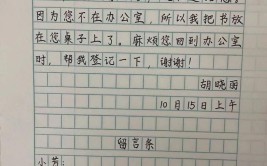 因为您不在办公室，所以我把书放
在您桌子上了。麻烦您回到办公室
时，帮我登记一下，谢谢！
胡晓丽
10月15日上午
留言条
小芳：